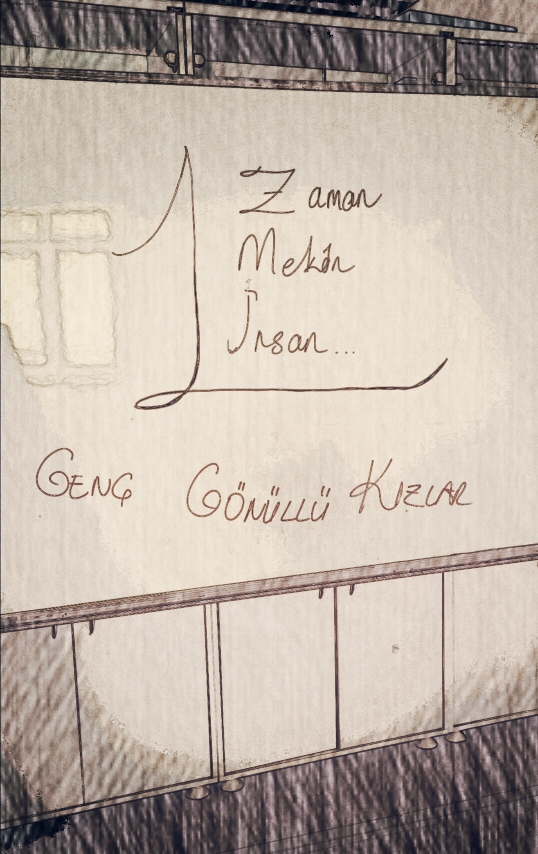 1 Zaman
Mekân
İnsan...
Genç Gönüllü Kızlar